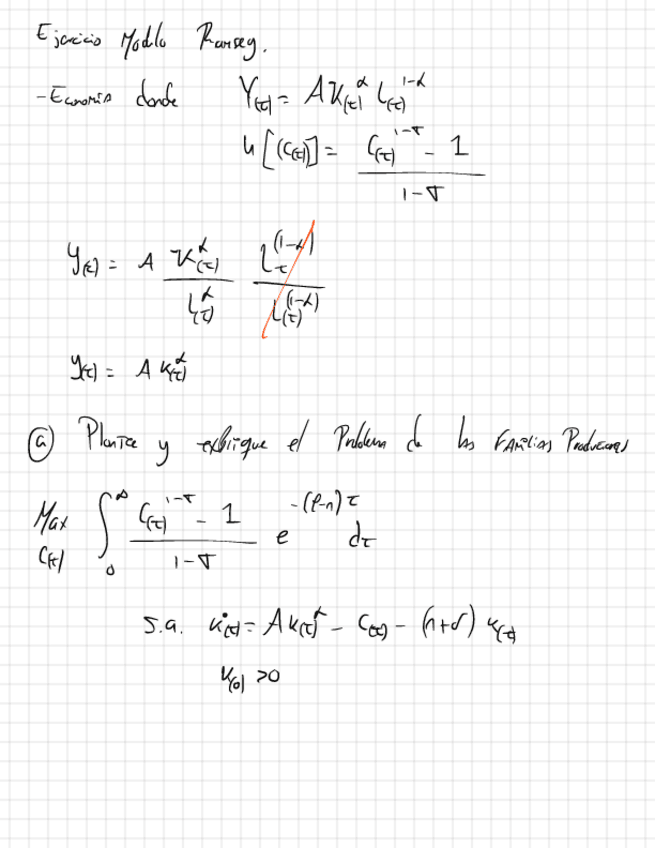 Ejercicio Modelo Ramsey.
- Economía donde Y(t) = A K(t)^α L(t)^{1-α}
u[(C(t))] = (C(t)^{1-σ} - 1) / (1-σ)
y(t) = A K(t)^α / L(t)^α L_t^{(1-α)} / L(t)^{(1-α)}
y(t) = A k(t)^α
(a) Plantee y explique el Problema de las Familias Productoras
Max C(t) ∫_0^∞ (C(t)^{1-σ} - 1) / (1-σ) e^{-(ρ-n)t} dt
s.a. k̇(t) = A k(t)^α - C(t) - (n+δ) k(t)
k(0) > 0